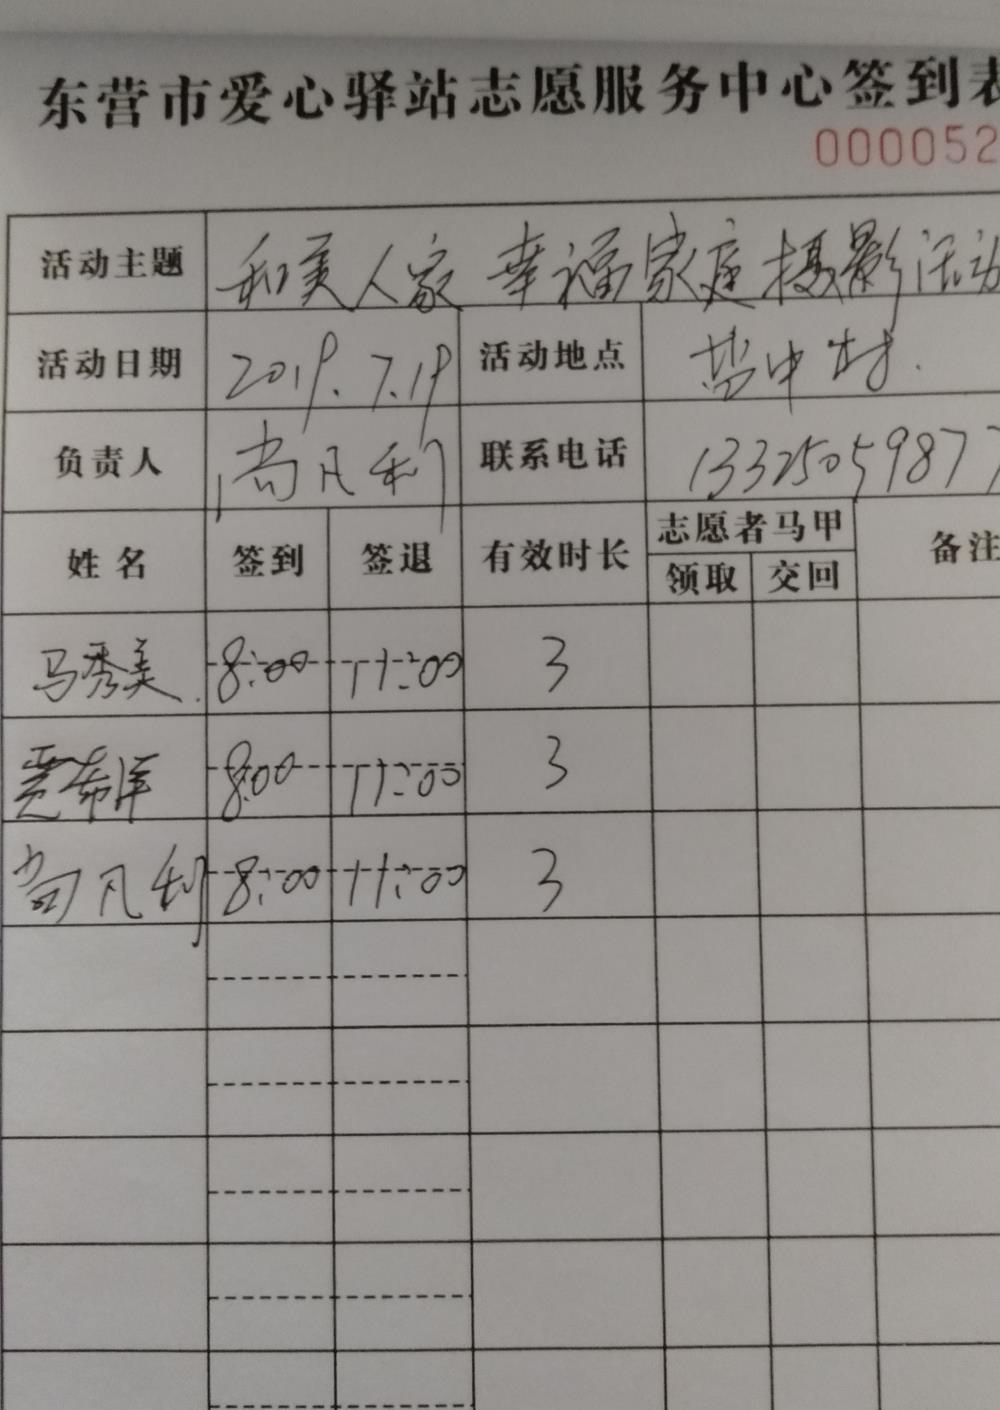 东营市爱心驿站志愿服务中心签到表
000052
活动主题 和美人家 幸福家庭摄影活动
活动日期 2019.7.19 活动地点 盐中村.
负责人 尚凡利 联系电话 13325059877
姓名 签到 签退 有效时长 志愿者马甲 备注
领取 交回
马秀美. 8:00 11:00 3
8:00 11:00 3
尚凡利 8:00 11:00 3